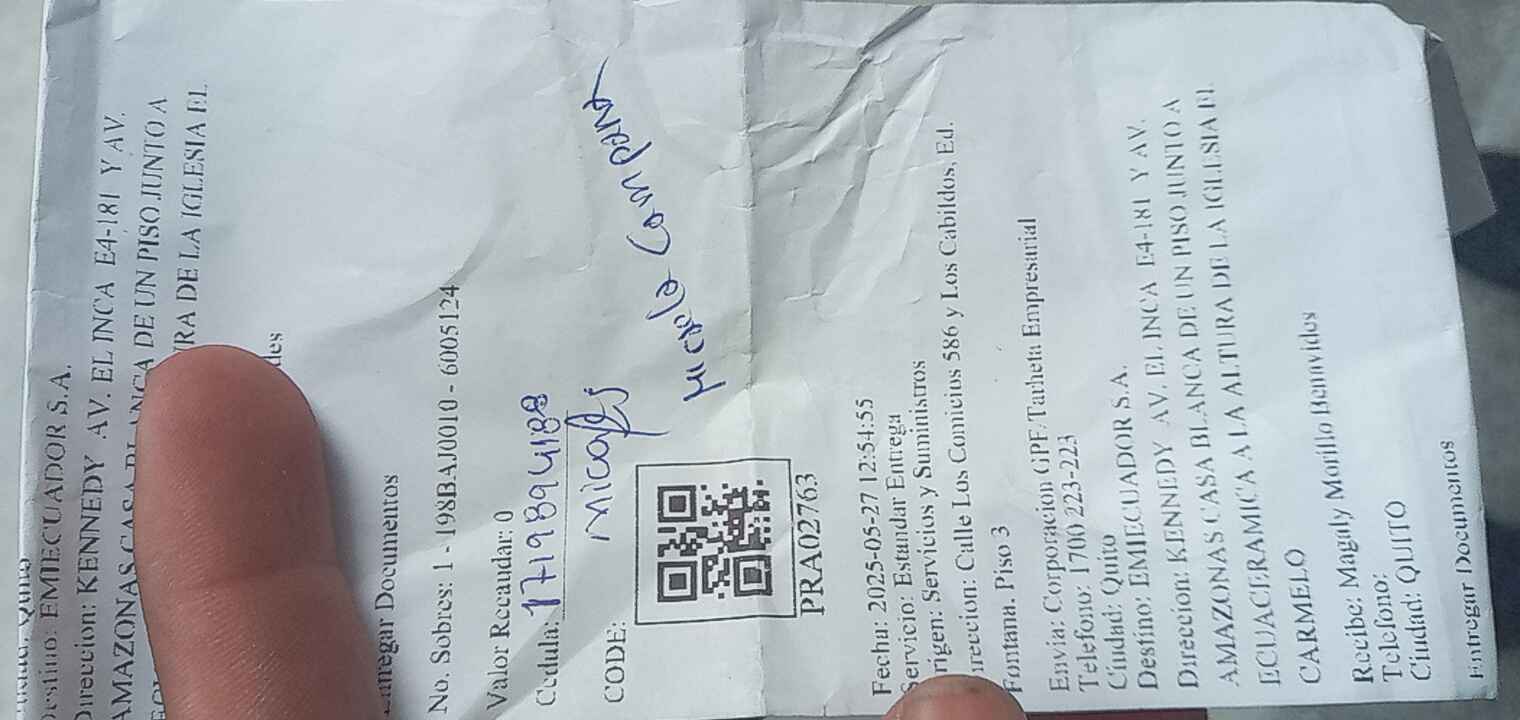 Destino: EMIECUADOR S.A.
Direccion: KENNEDY AV. EL INCA E4-181 Y AV.
AMAZONAS CASA BLANCA DE UN PISO JUNTO A
DE LA IGLESIA EL
Entregar Documentos
No. Sobres: 1 - 198BAJ0010 - 6005124
Valor Recaudar: 0
Cedula: 1719894188
CODE:
PRA02763
Fecha: 2025-05-27 12:54:55
Servicio: Estandar Entrega
rigen: Servicios y Suministros
ireccion: Calle Los Comicios 586 y Los Cabildos, Ed.
Fontana. Piso 3
Envia: Corporacion GPF/Tarheta Empresarial
Telefono: 1700 223-223
Ciudad: Quito
Destino: EMIECUADOR S.A.
Direccion: KENNEDY AV. EL INCA E4-181 Y AV.
AMAZONAS CASA BLANCA DE UN PISO JUNTO A
ECUACERAMICA A LA ALTURA DE LA IGLESIA EL
CARMELO
Recibe: Magaly Morillo Benavides
Telefono:
Ciudad: QUITO
Entregar Documentos